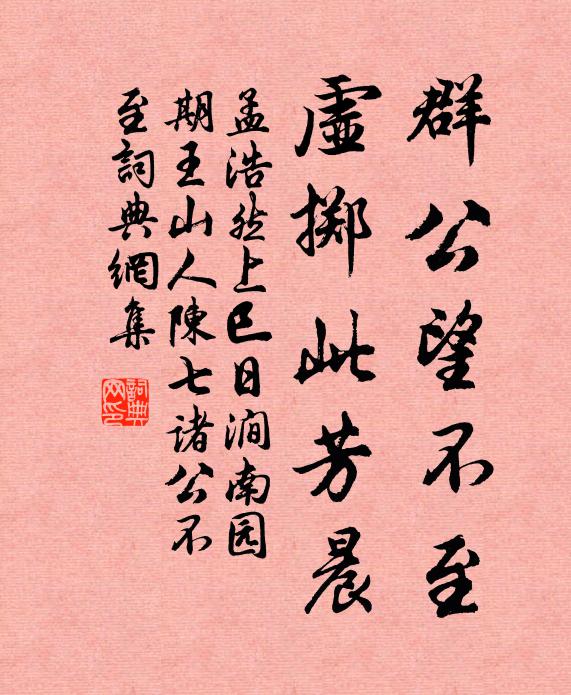 群公望不至
虛掷此芳晨
孟浩然上巳日澗南园
期王山人陳七诸公不
至詞典網集
詞典网印